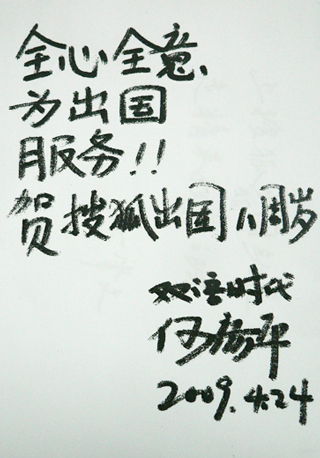 全心全意、
为出国
服务!!
贺搜狐出国八周岁
双语时代
2009.4.24